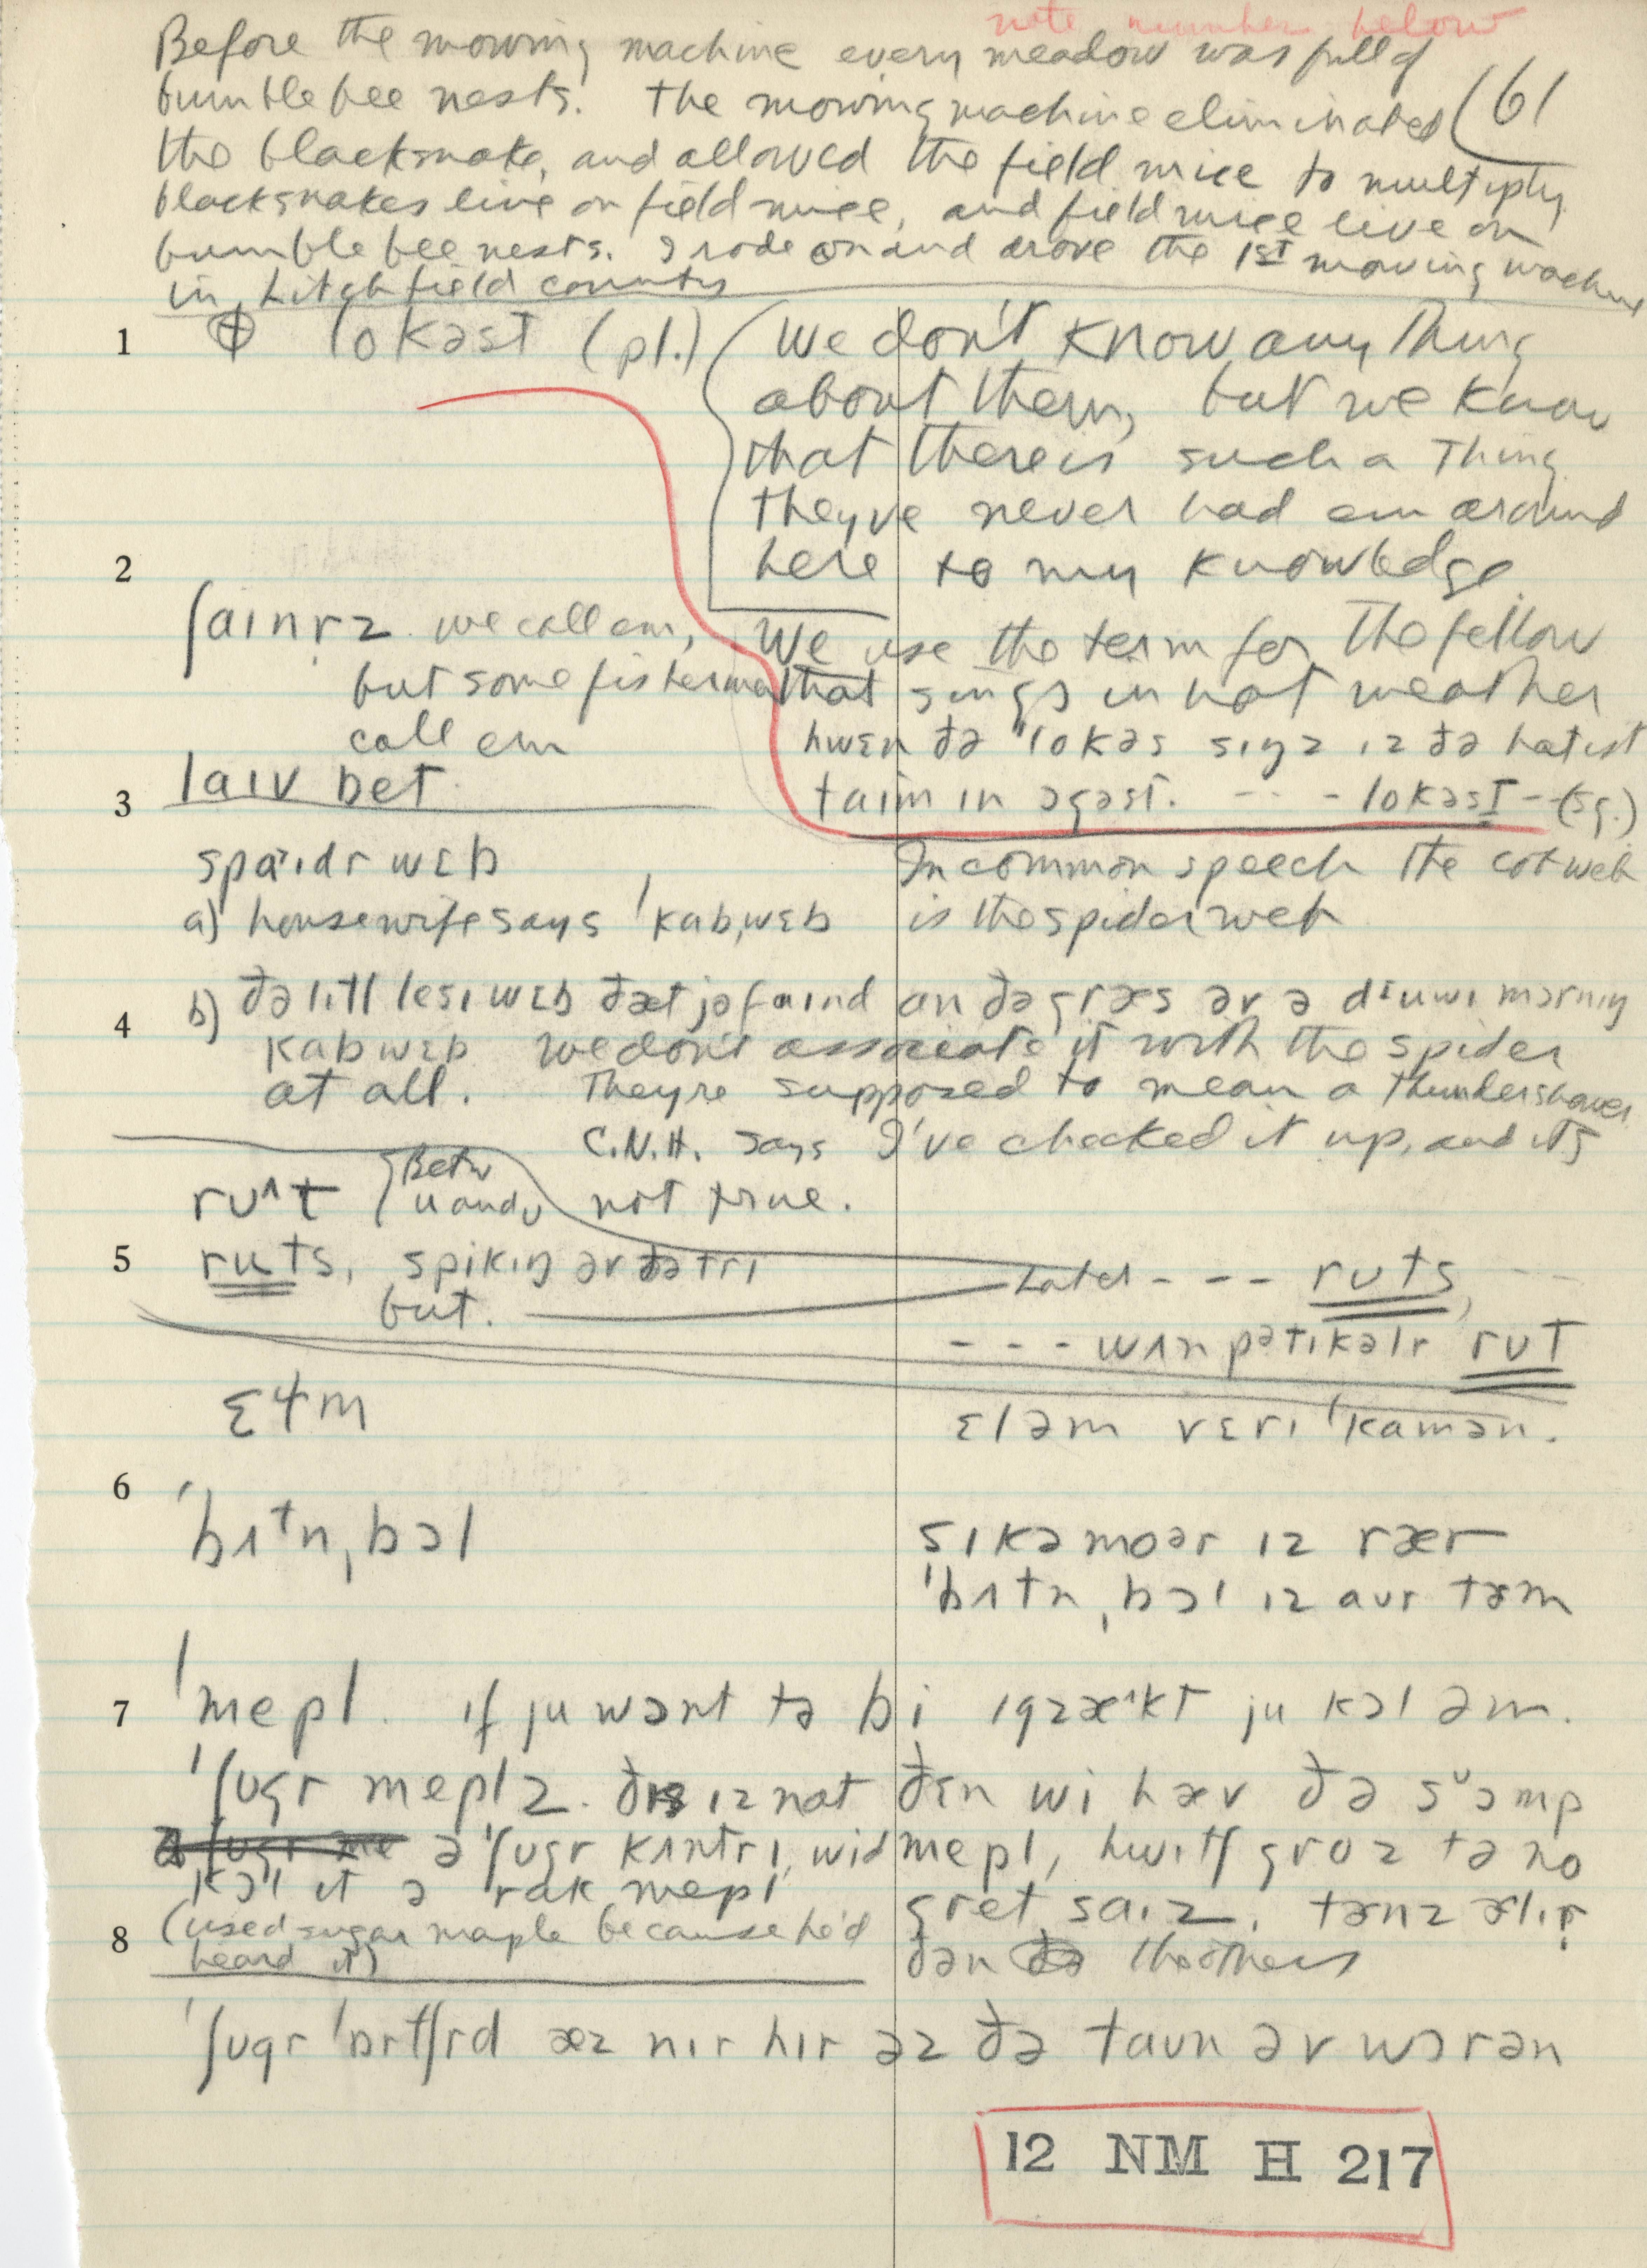 note number below
Before the mowing machine every meadow was full of
bumble bee nests. The mowing machine eliminated (61
the blacksnake, and allowed the field mice to multiply
blacksnakes live on field mice, and field mice live on
bumble bee nests. I rode on and drove the 1st mowing machine
in Litchfield county
1 ⊕ lokəst (pl.) (We don't know anything
about them, but we know
that there is such a thing
they've never had em around
here to my knowledge
2
ʃaɪnrz we call em,
but some fishermen
call em
laɪv bet
We use the term for the fellow
that sings in hot weather
hwɛn ðə lokəs sɪŋz ɪz ðə hatɪst
taim ɪn əgəst. - - - lokəst - (sg.)
3
spaɪdr wɛb
In common speech the cobweb
a) housewife says ˈkabˌwɛb
is the spider web
4 b) ðə lɪtl lesɪ wɛb ðæt jə faɪnd an ðə græs əv ə dɪuwɪ mɔrnɪŋ
kabwɛb we don't associate it with the spider
at all. They're supposed to mean a thundershower
C.N.H. says I've checked it up, and it's
not true.
ru^t {Betw
u and ʊ
5 ruts, spikɪŋ əv ðə tri
but.
Later - - - rʊts,
- - - wʌn pətɪkəlr rʊt
ɛɫm
ɛləm vɛrɪ ˈkamən.
6
ˈbʌtnˌbɔl
sɪkəmoər ɪz rær
ˈbʌtnˌbɔl ɪz aʊr tɜm
7 ˈmepl. ɪf ju wɔnt tə bi ɪgzækt ju kɔl əm.
ˈʃʊgr meplz. ðɪs ɪz nat ðɛn wi hæv ðə swɔmp
ə ˈʃʊgr kʌntrɪ, wid mepl, hwɪtʃ groz tə no
kɔl ɪt ə rak mepl
gret saɪz. tɜnz ɜlɪr
8 (used sugar maple because he'd
heard it)
ðən the others
ˈʃʊgr ˈɔrtʃrd æz nɪr hɪr əz ðə taʊn əv wɔrən
12 NM H 217